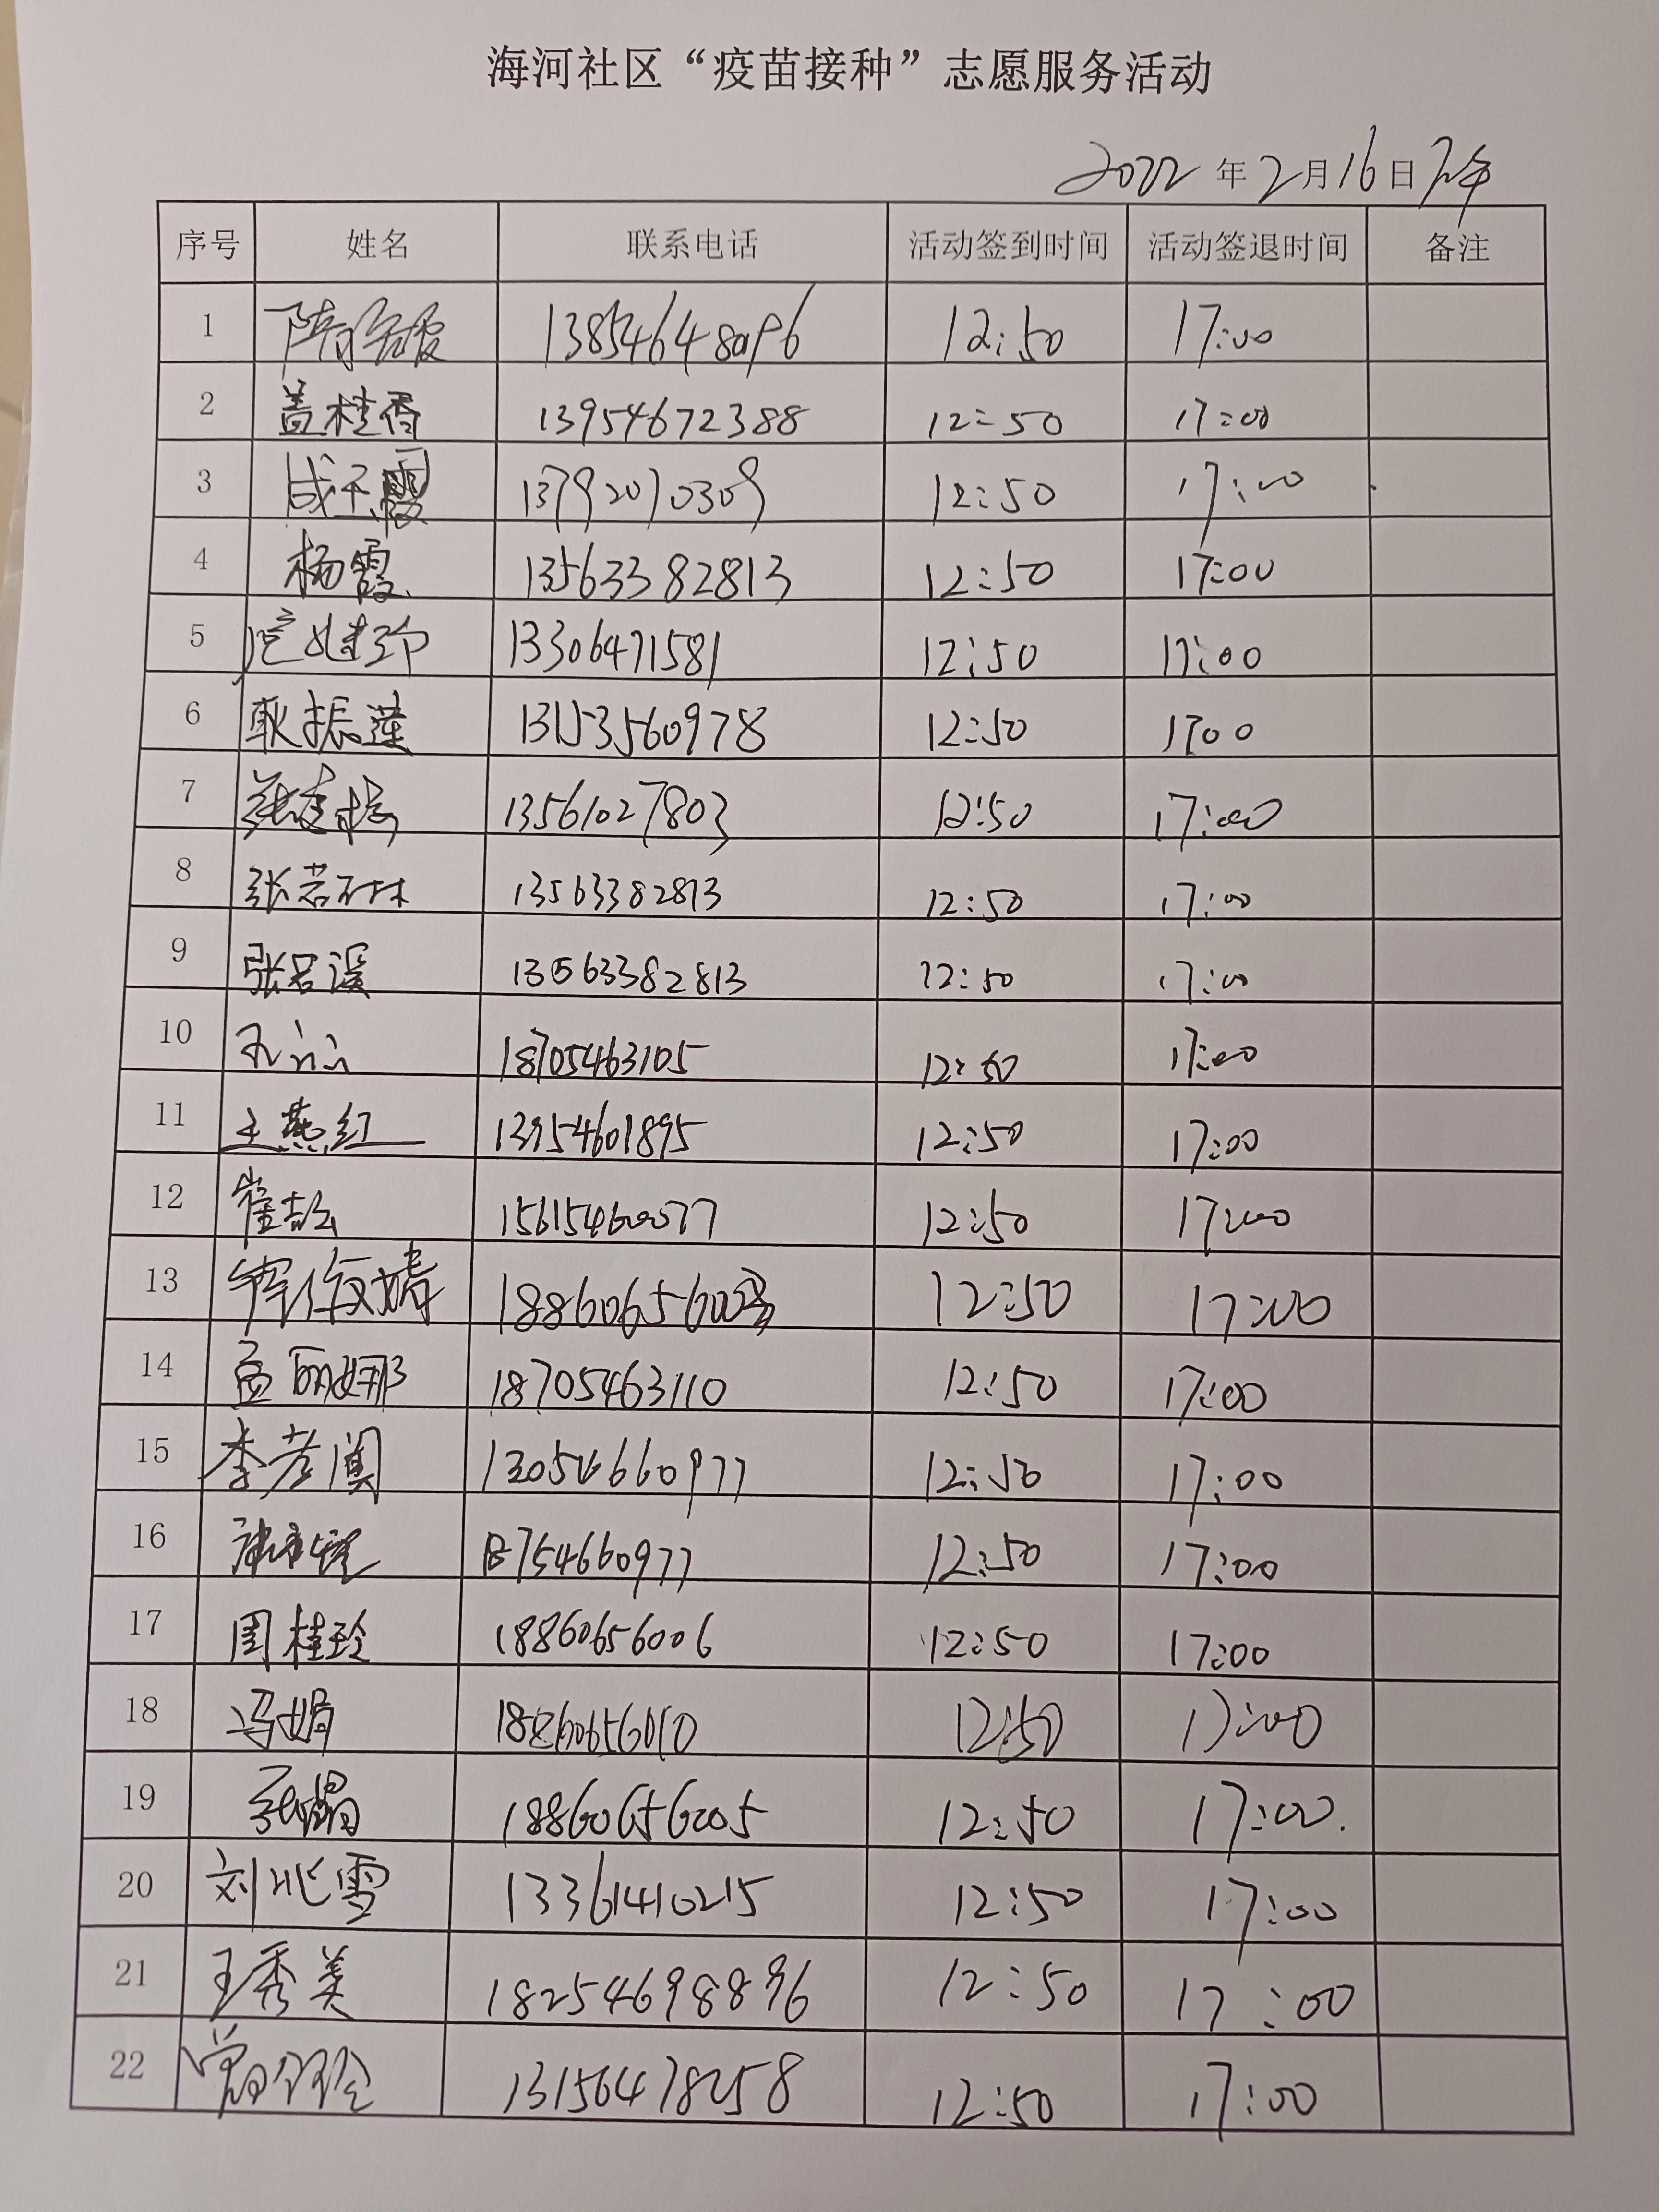 海河社区“疫苗接种”志愿服务活动
2022年2月16日下午
序号 姓名 联系电话 活动签到时间 活动签退时间 备注
1 13854648096 12:50 17:00
2 盖桂香 13954672388 12:50 17:00
3 成玉霞 13792070309 12:50 17:00
4 杨霞 13563382813 12:50 17:00
5 13306471581 12:50 17:00
6 耿振莲 13153560978 12:50 17:00
7 13561027803 12:50 17:00
8 张若琳 13563382813 12:50 17:00
9 张若溪 13563382813 12:50 17:00
10 18705463105 12:50 17:00
11 王燕红 13954601895 12:50 17:00
12 崔 15615460077 12:50 17:00
13 12:50 17:00
14 孟丽娜 18705463110 12:50 17:00
15 李 12:50 17:00
16 12:50 17:00
17 周桂玲 18860656006 12:50 17:00
18 冯娟 18860656010 12:50 17:00
19 18860656005 12:50 17:00.
20 刘兆雪 13361410215 12:50 17:00
21 王秀美 18254698896 12:50 17:00
22 13156478258 12:50 17:00